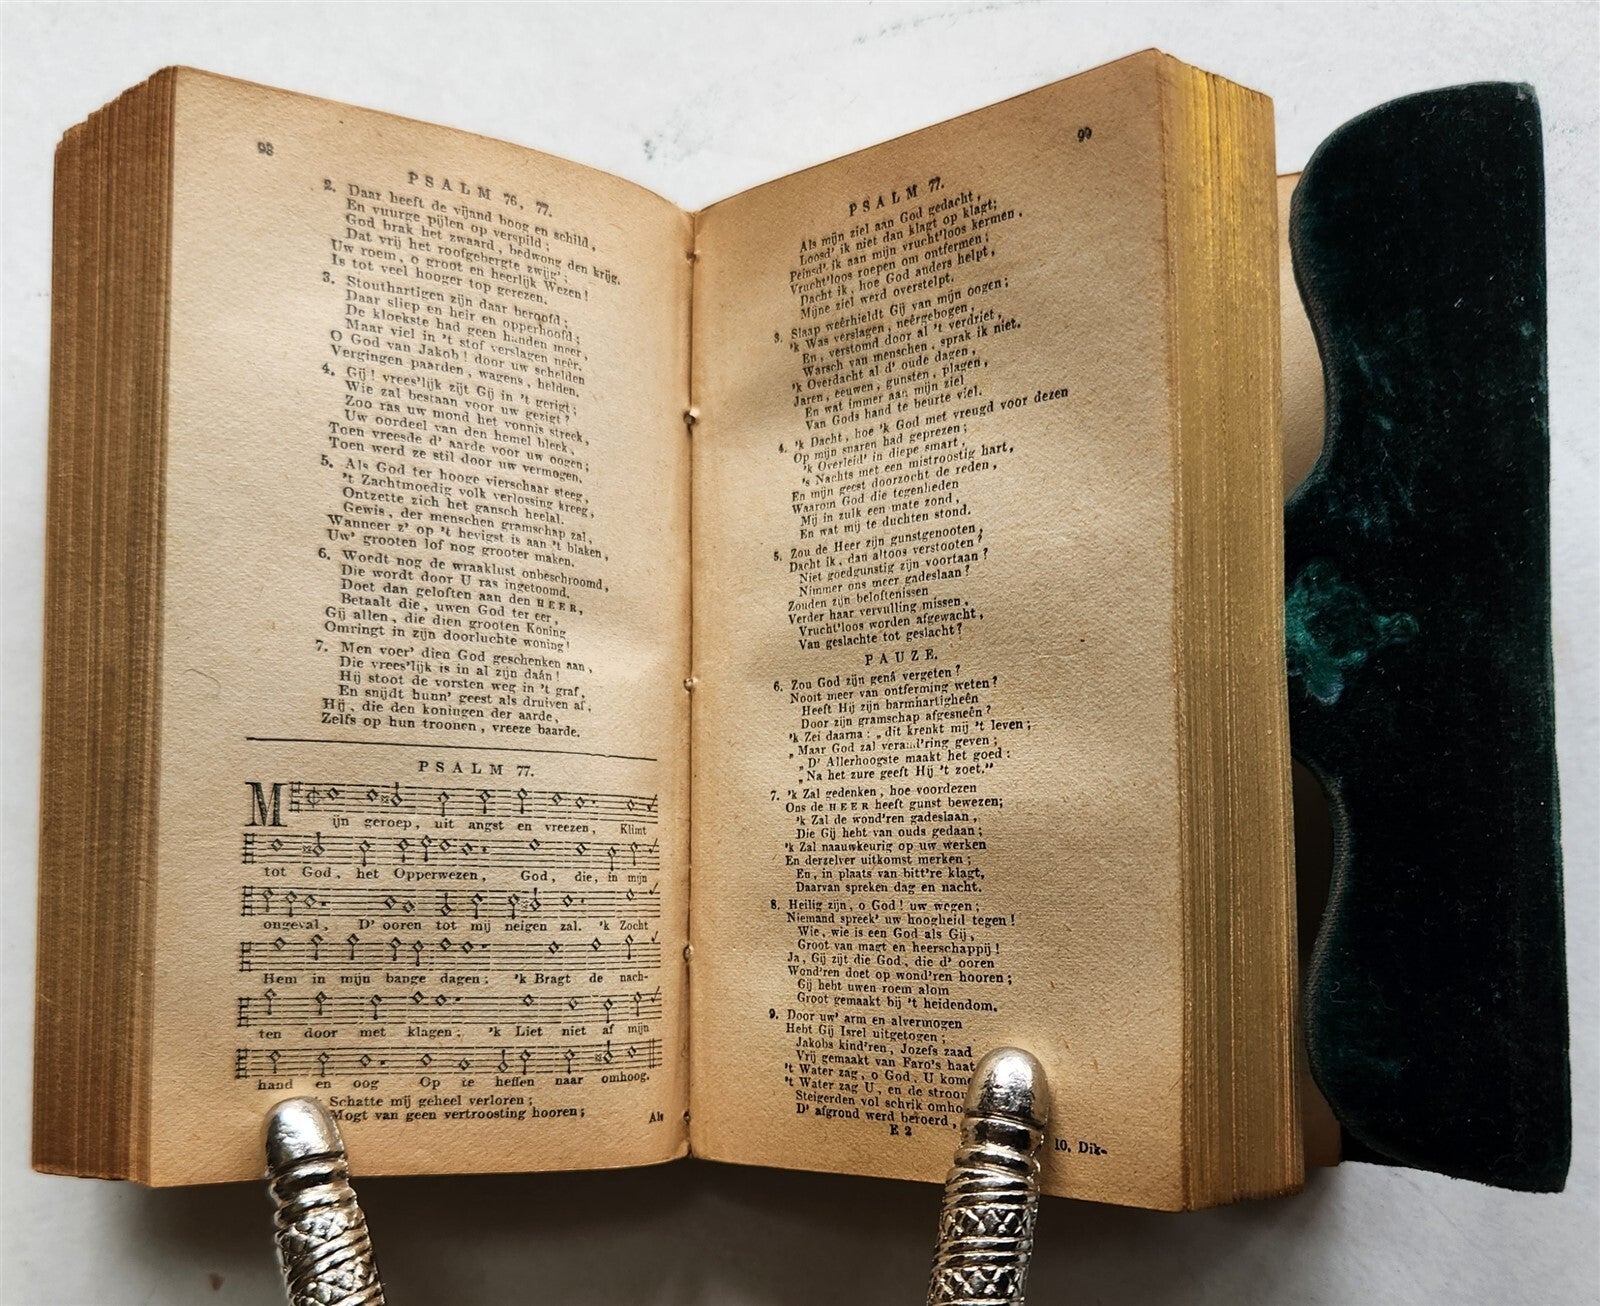 98
PSALM 76, 77.
2. Daar heeft de vijand boog en schild,
En vuurge pijlen op verspild;
God brak het zwaard, bedwong den krijg.
Dat vrij het roofgebergte zwijg';
Uw roem, o groot en heerlijk Wezen!
Is tot veel hooger top gerezen.
3. Stouthartigen zijn daar beroofd;
Daar sliep en heir en opperhoofd;
De kloekste had geen handen meer,
Maar viel in 't stof verslagen neêr.
O God van Jakob! door uw schelden
Vergingen paarden, wagens, helden.
4. Gij! vrees'lijk zijt Gij in 't gerigt;
Wie zal bestaan voor uw gezigt?
Zoo ras uw mond het vonnis streek,
Uw oordeel van den hemel bleek,
Toen vreesde d' aarde voor uw oogen;
Toen werd ze stil door uw vermogen.
5. Als God ter hooge vierschaar steeg,
't Zachtmoedig volk verlossing kreeg,
Ontzette zich het gansch heelal.
Gewis, der menschen gramschap zal,
Wanneer z' op 't hevigst is aan 't blaken,
Uw' grooten lof nog grooter maken.
6. Woedt nog de wraaklust onbeschroomd,
Die wordt door U ras ingetoomd.
Doet dan geloften aan den HEER,
Betaalt die, uwen God ter eer,
Gij allen, die dien grooten Koning
Omringt in zijn doorluchte woning!
7. Men voer' dien God geschenken aan,
Die vrees'lijk is in al zijn daân!
Hij stoot de vorsten weg in 't graf,
En snijdt hunn' geest als druiven af,
Hij, die den koningen der aarde,
Zelfs op hun troonen, vreeze baarde.
PSALM 77.
Mijn geroep, uit angst en vreezen, Klimt
tot God, het Opperwezen, God, die, in mijn
ongeval, D' ooren tot mij neigen zal. 'k Zocht
Hem in mijn bange dagen; 'k Bragt de nach-
ten door met klagen; 'k Liet niet af mijn
hand en oog Op te heffen naar omhoog.
Schatte mij geheel verloren;
Mogt van geen vertroosting hooren;
Als
99
PSALM 77.
Als mijn ziel aan God gedacht,
Loosd' ik niet dan klagt op klagt;
Peinsd' ik aan mijn vrucht'loos kermen,
Vrucht'loos roepen om ontfermen;
Dacht ik, hoe God anders helpt,
Mijne ziel werd overstelpt.
3. Slaap weêrhieldt Gij van mijn oogen;
'k Was verslagen, neêrgebogen,
En, verstomd door al 't verdriet,
Warsch van menschen, sprak ik niet.
'k Overdacht al d' oude dagen,
Jaren, eeuwen, gunsten, plagen,
En wat immer aan mijn ziel
Van Gods hand te beurte viel.
4. 'k Dacht, hoe 'k God met vreugd voor dezen
Op mijn snaren had geprezen;
'k Overleid' in diepe smart,
's Nachts met een mistroostig hart,
En mijn geest doorzocht de reden,
Waarom God die tegenheden
Mij in zulk een mate zond,
En wat mij te duchten stond.
5. Zou de Heer zijn gunstgenooten,
Dacht ik, dan altoos verstooten?
Niet goedgunstig zijn voortaan?
Nimmer ons meer gadeslaan?
Zouden zijn beloftenissen
Verder haar vervulling missen,
Vrucht'loos worden afgewacht,
Van geslachte tot geslacht?
PAUZE.
6. Zou God zijn genâ vergeten?
Nooit meer van ontferming weten?
Heeft Hij zijn barmhartigheên
Door zijn gramschap afgesneên?
'k Zei daarna: „dit krenkt mij 't leven;
„Maar God zal verand'ring geven;
„D' Allerhoogste maakt het goed:
„Na het zure geeft Hij 't zoet."
7. 'k Zal gedenken, hoe voordezen
Ons de HEER heeft gunst bewezen;
'k Zal de wond'ren gadeslaan,
Die Gij hebt van ouds gedaan;
'k Zal naauwkeurig op uw werken
En derzelver uitkomst merken;
En, in plaats van bitt're klagt,
Daarvan spreken dag en nacht.
8. Heilig zijn, o God! uw wegen;
Niemand spreek' uw hoogheid tegen!
Wie, wie is een God als Gij,
Groot van magt en heerschappij!
Ja, Gij zijt die God, die d' ooren
Wond'ren doet op wond'ren hooren;
Gij hebt uwen roem alom
Groot gemaakt bij 't heidendom.
9. Door uw' arm en alvermogen
Hebt Gij Isrel uitgetogen;
Jakobs kind'ren, Jozefs zaad
Vrij gemaakt van Faro's haat
't Water zag, o God, U kome
't Water zag U, en de stroo
Steigerden vol schrik omho
D' afgrond werd beroerd,
E 2
10. Dik-